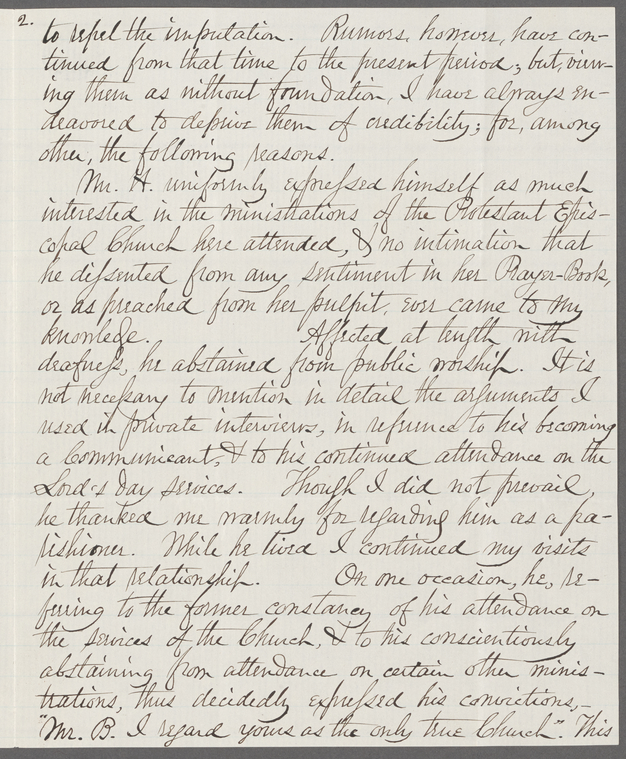 2.
to repel the imputation. Rumors, however, have con-
tinued from that time to the present period; but, view-
ing them as without foundation, I have always en-
deavored to deprive them of credibility; for, among
other, the following reasons.
Mr. H. uniformly expressed himself as much
interested in the ministrations of the Protestant Epis-
copal Church here attended, & no intimation that
he dissented from any sentiment in her Prayer-Book,
or as preached from her pulpit, ever came to my
knowledge. Affected at length with
deafness, he abstained from public worship. It is
not necessary to mention in detail the arguments I
used in private interviews, in reference to his becoming
a Communicant, & to his continued attendance on the
Lord's day services. Though I did not prevail,
he thanked me warmly for regarding him as a pa-
rishioner. While he lived I continued my visits
in that relationship. On one occasion, he, re-
ferring to the former constancy of his attendance on
the services of the Church, & to his conscientiously
abstaining from attendance on certain other minis-
trations, thus decidedly expressed his convictions,-
"Mr. B. I regard yours as the only true Church". This